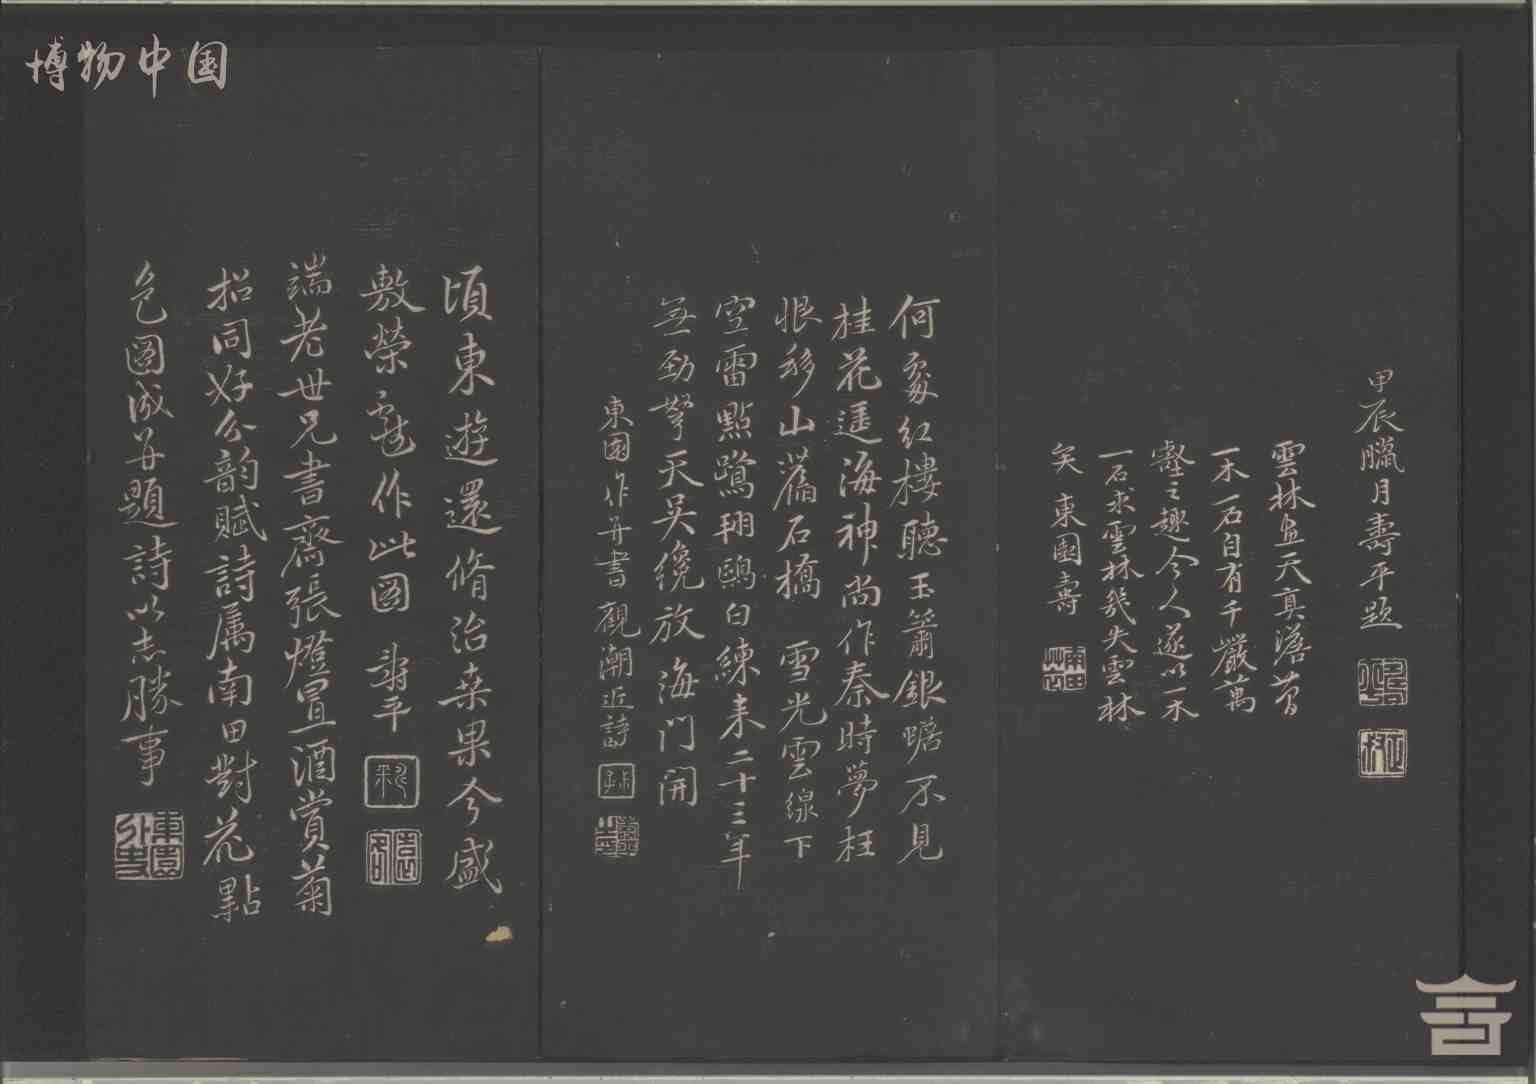 博物中国
甲辰臘月壽平題
雲林畫天真澹蕳
一木一石自有千巖萬
壑之趣今人遂以一木
一石求雲林幾失雲林
矣 東園壽
何處紅樓聽玉簫銀蟾不見
桂花遥海神尚作秦時夢枉
恨移山蘸石橋 雪光雲線下
空雷點鷺翔鷗白練来二十三年
無勁弩天吳纔放海門開
東園作并書觀潮近詩
頃東遊還脩治桒果今盛
敷榮寵作此圖 壽平
端老世兄書齋張燈置酒賞菊
招同好分韵賦詩属南田對花點
色圖成并題詩以志勝事
東園外史